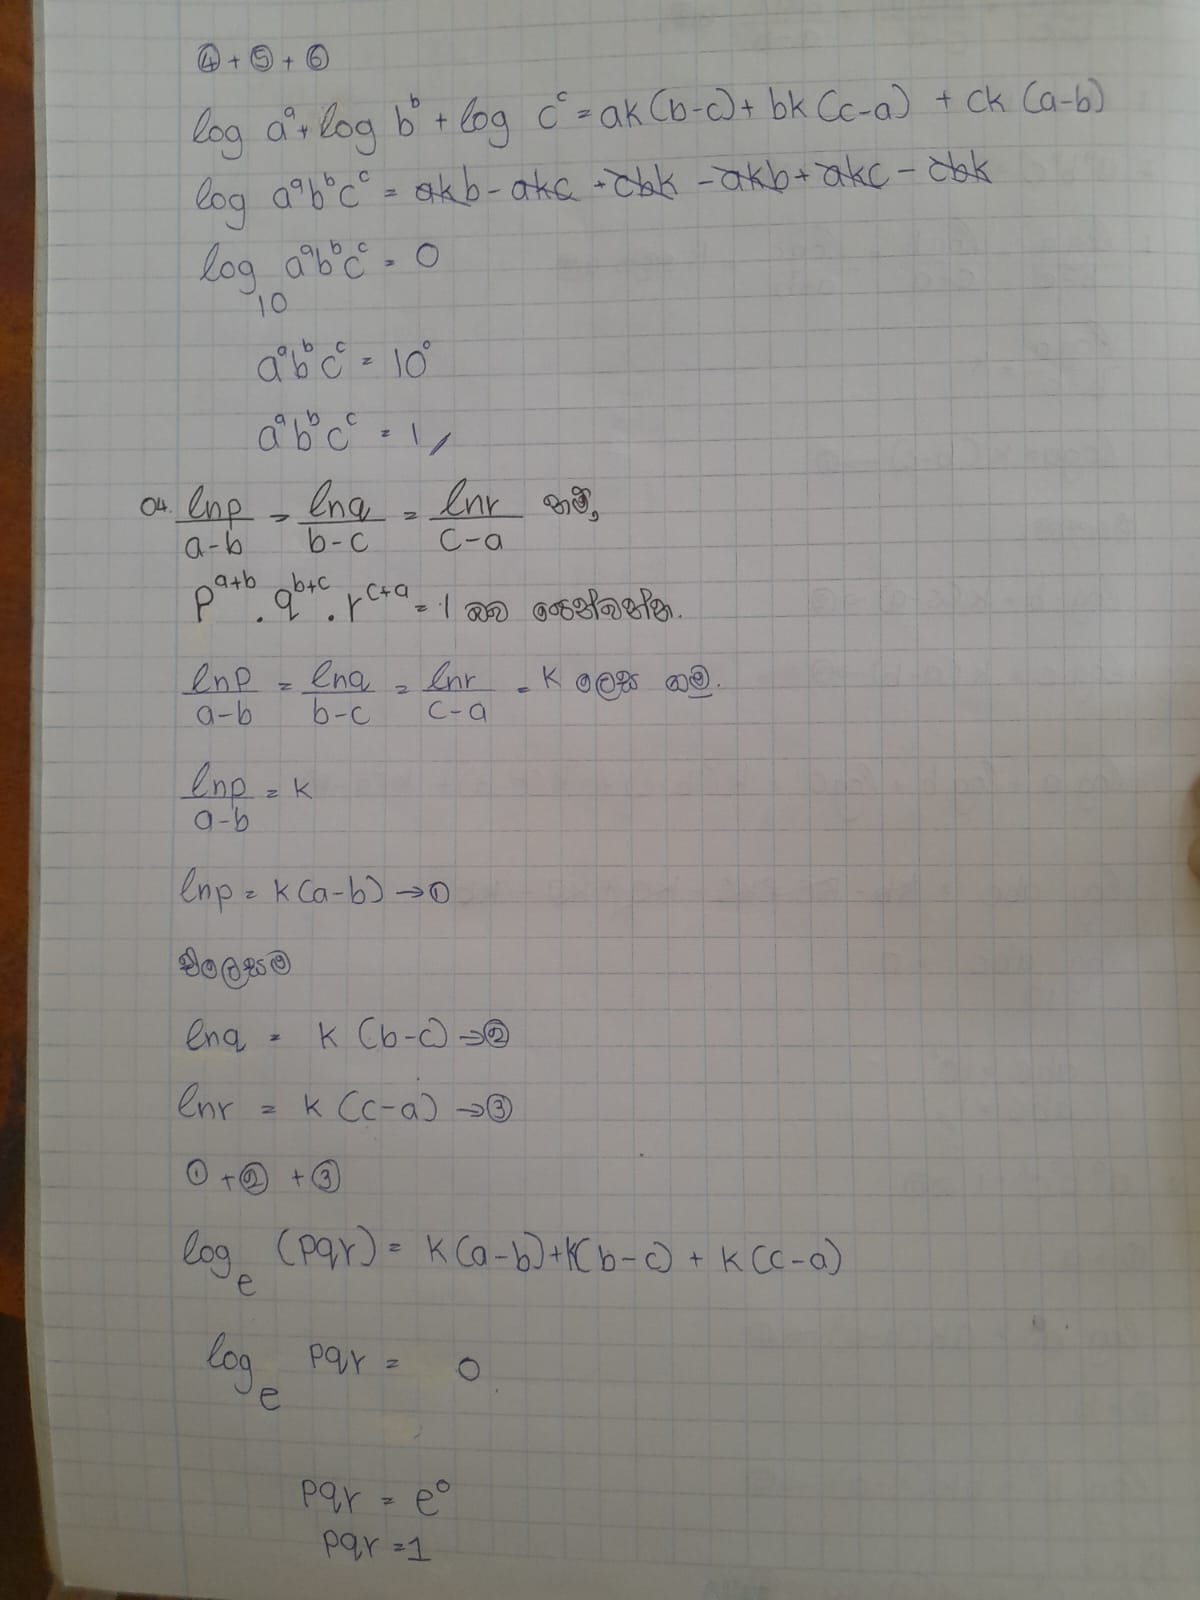 ④ + ⑤ + ⑥
log aᵃ + log bᵇ + log cᶜ = ak(b-c) + bk(c-a) + ck(a-b)
log aᵃbᵇcᶜ = akb - akc + cbk - akb + akc - cbk
log₁₀ aᵃbᵇcᶜ = 0
aᵃbᵇcᶜ = 10⁰
aᵃbᵇcᶜ = 1 //
04. lnp/(a-b) = lnq/(b-c) = lnr/(c-a) නම්,
p^(a+b) . q^(b+c) . r^(c+a) = 1 බව පෙන්වන්න.
lnp/(a-b) = lnq/(b-c) = lnr/(c-a) = k ලෙස ගමු.
lnp/(a-b) = k
lnp = k(a-b) → ①
එලෙසම
lnq = k (b-c) → ②
lnr = k (c-a) → ③
① + ② + ③
logₑ (pqr) = k(a-b) + k(b-c) + k(c-a)
logₑ pqr = 0
pqr = e⁰
pqr = 1